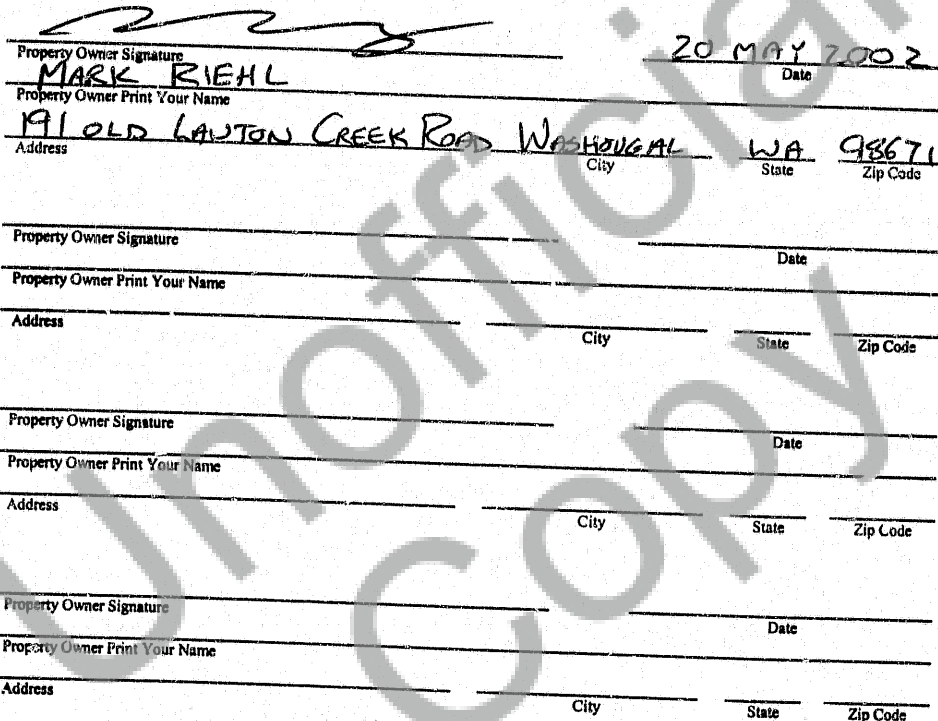 20 MAY 2002
Property Owner Signature Date
MARK RIEHL
Property Owner Print Your Name
191 OLD LAWTON CREEK ROAD WASHOUGAL WA 98671
Address City State Zip Code
Property Owner Signature Date
Property Owner Print Your Name
Address City State Zip Code
Property Owner Signature Date
Property Owner Print Your Name
Address City State Zip Code
Property Owner Signature Date
Property Owner Print Your Name
Address City State Zip Code
Unofficial
Copy